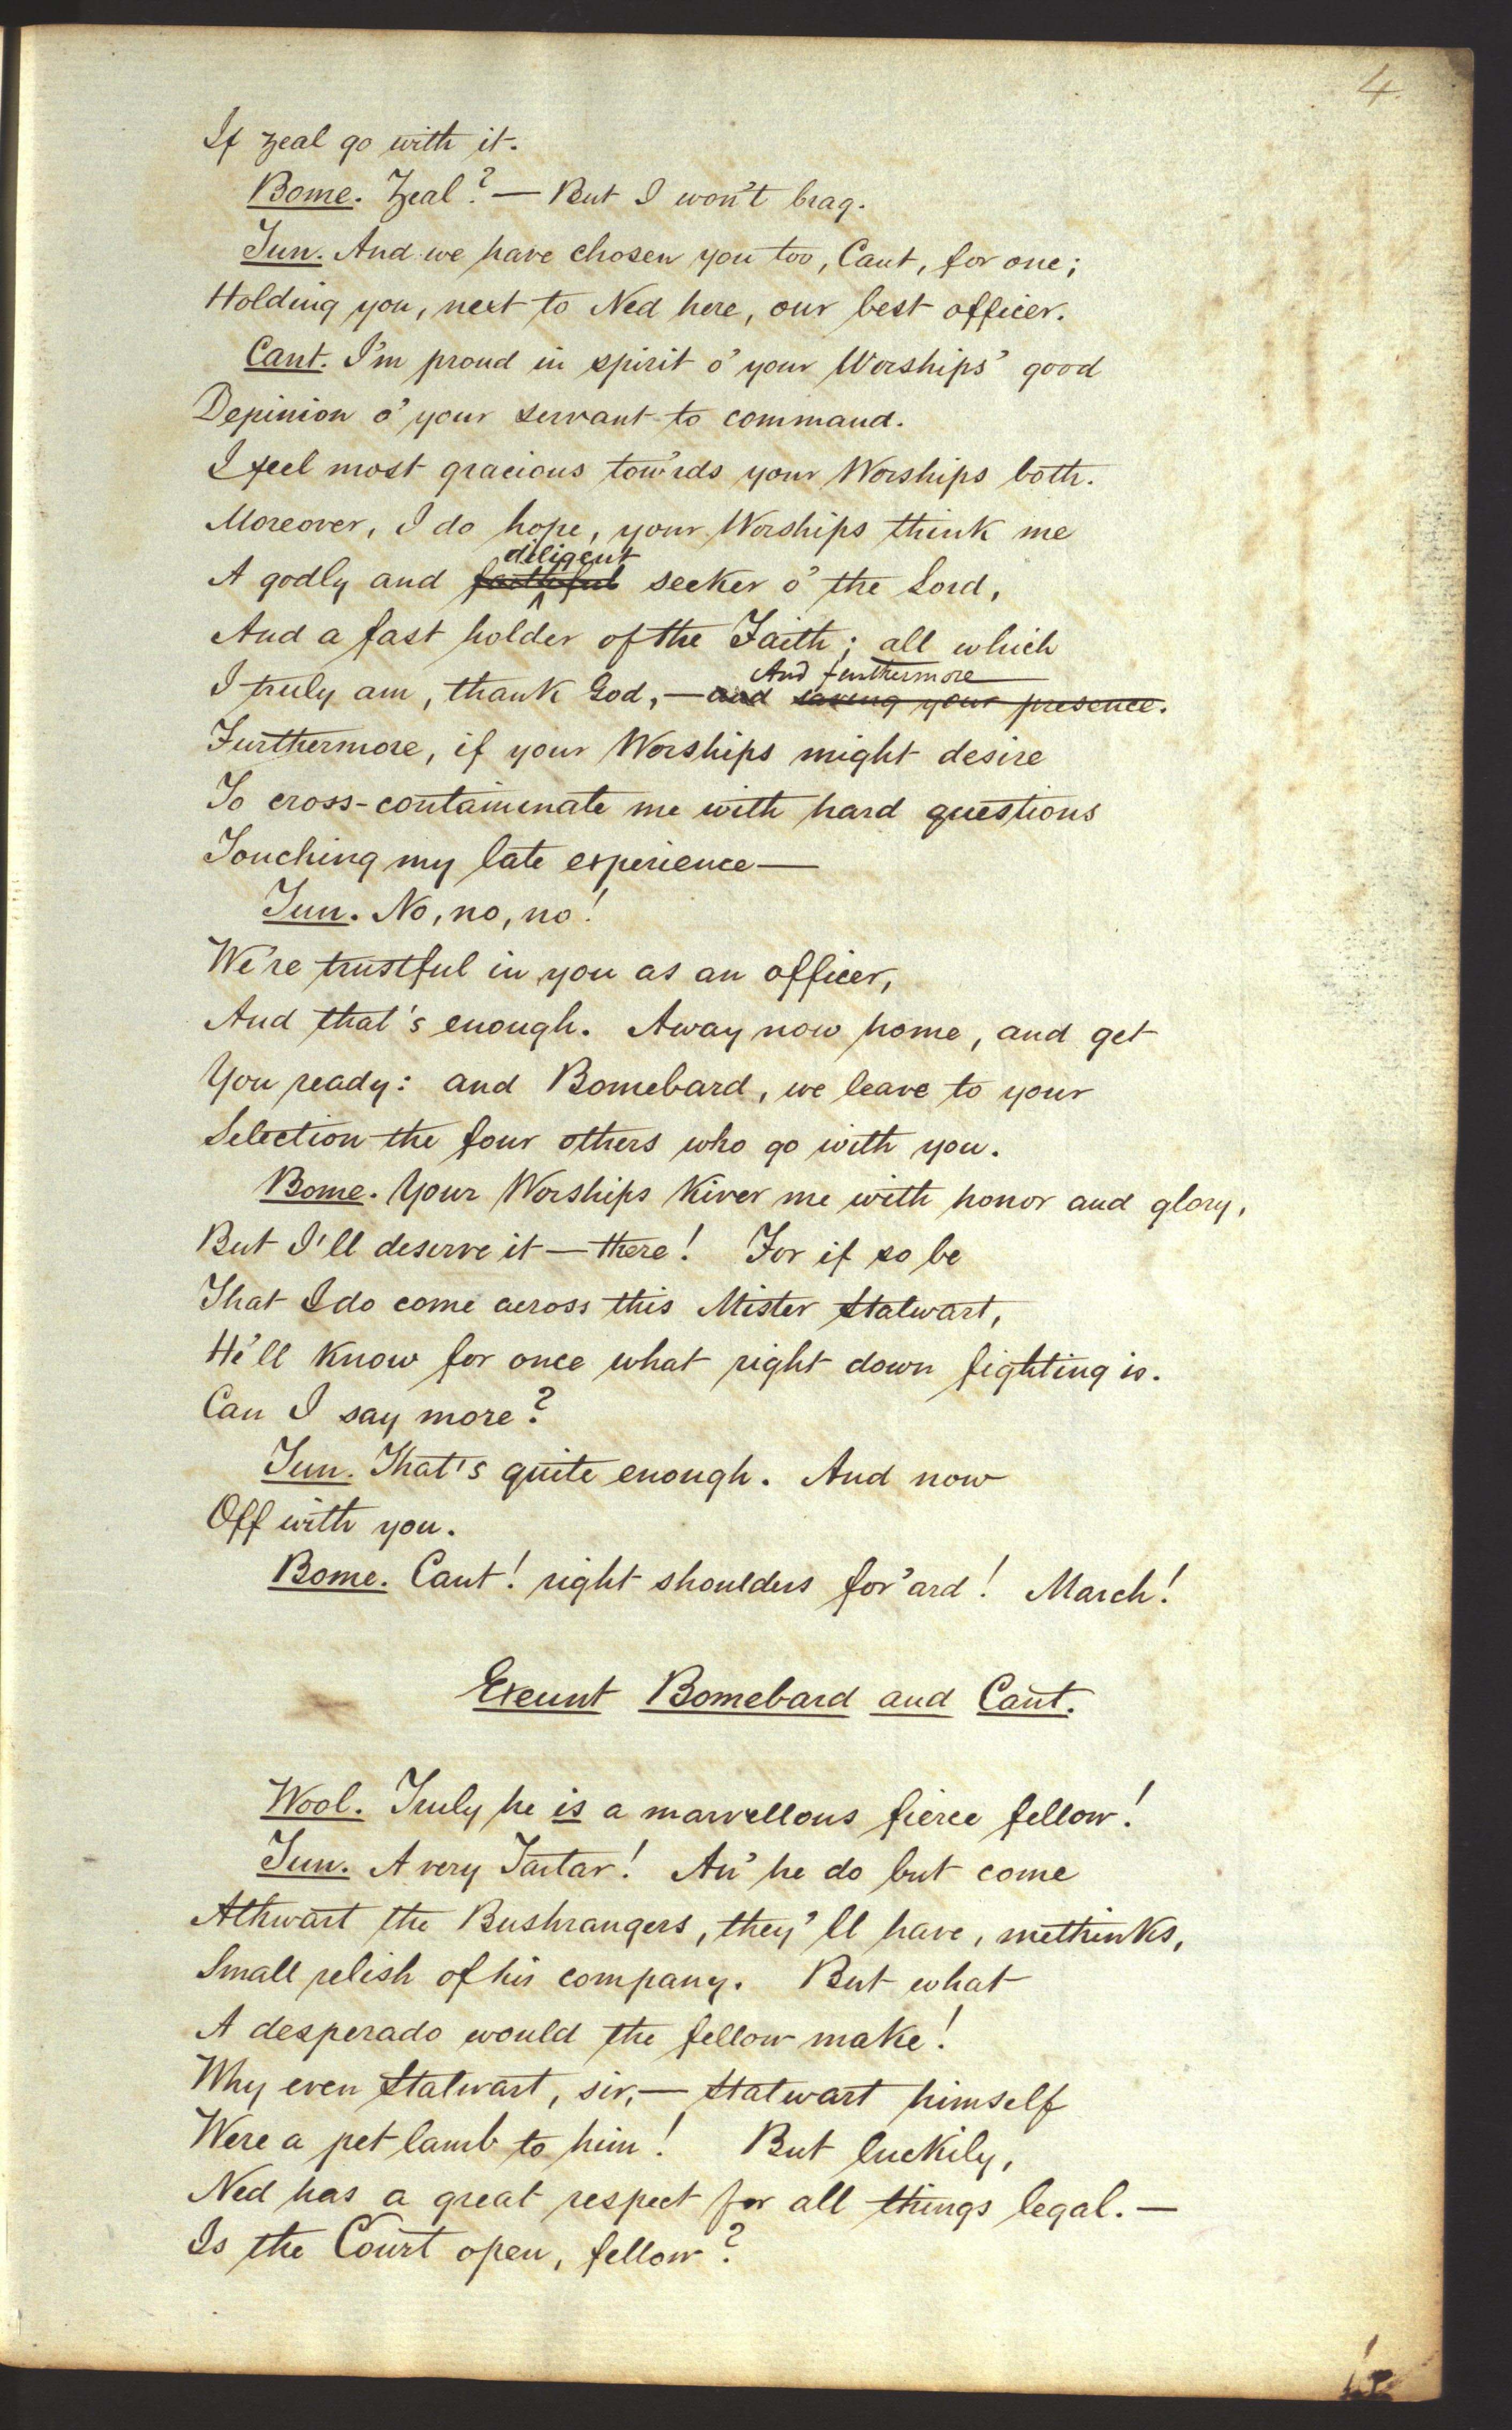 4
If zeal go with it.
Bome. Zeal? — But I won't brag.
Tun. And we have chosen you too, Cant, for one;
Holding you, next to Ned here, our best officer.
Cant. I'm proud in spirit o' your Worships' good
Depinion o' your servant to command.
I feel most gracious tow'rds your Worships both.
Moreover, I do hope, your Worships think me
diligent
A godly and faithful seeker o' the Lord,
And a fast holder of the Faith; all which
And furthermore
I truly am, thank God, — and saving your presence.
Furthermore, if your Worships might desire
To cross-contaminate me with hard questions
Touching my late experience —
Tun. No, no, no!
We're trustful in you as an officer,
And that's enough. Away now home, and get
You ready: and Bomebard, we leave to your
Selection the four others who go with you.
Bome. Your Worships kiver me with honor and glory,
But I'll deserve it — there! For if so be
That I do come across this Mister Stalwart,
He'll know for once what right down fighting is.
Can I say more?
Tun. That's quite enough. And now
Off with you.
Bome. Cant! right shoulders for'ard! March!
Exeunt Bomebard and Cant.
Wool. Truly he is a marvellous fierce fellow!
Tun. A very Tartar! An' he do but come
Athwart the Bushrangers, they'll have, methinks,
Small relish of his company. But what
A desperado would the fellow make!
Why even Stalwart, sir, — Stalwart himself
Were a pet lamb to him! But luckily,
Ned has a great respect for all things legal. —
Is the Court open, fellow?